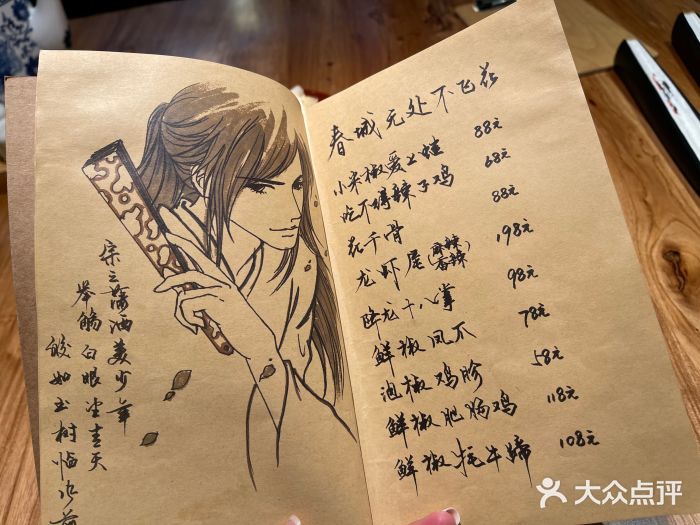 宗之潇洒美少年
举觞白眼望青天
皎如玉树临风前
春城无处不飞花
小米椒爱上蛙 88元
吃不得辣子鸡 68元
花千骨 88元
龙虾尾(麻辣 香辣) 198元
降龙十八掌 98元
鲜椒凤爪 78元
泡椒鸡胗 58元
鲜椒肥肠鸡 118元
鲜椒牦牛蹄 108元
大众点评